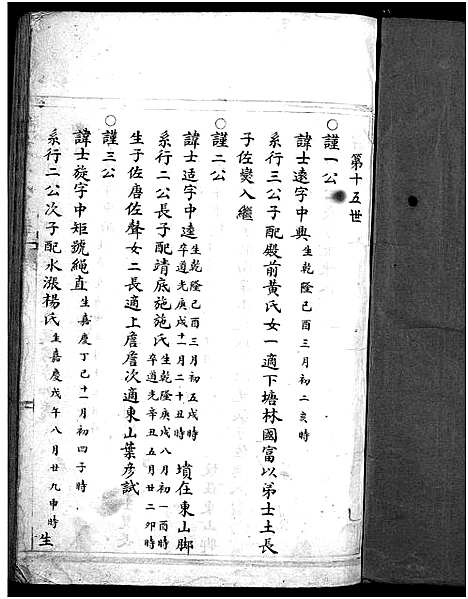 第十五世
○謹一公
諱士遠字中興生乾隆己酉三月初二亥時
系行三公子配殿前黃氏女一適下塘林國富以弟士土長
子佐燮入繼
○謹二公
諱士适字中逵生乾隆己酉三月初五戌時卒道光庚戌十一月二十丑時墳在東山腳
系行二公長子配靖底施施氏生乾隆庚戌八月初一酉時卒道光辛丑五月廿二卯時
生子佐唐佐聲女二長適上詹詹次適東山葉彥試
○謹三公
諱士旋字中矩號繩直生嘉慶丁巳十一月初四子時
系行二公次子配水漲楊氏生嘉慶戊午八月廿九申時生